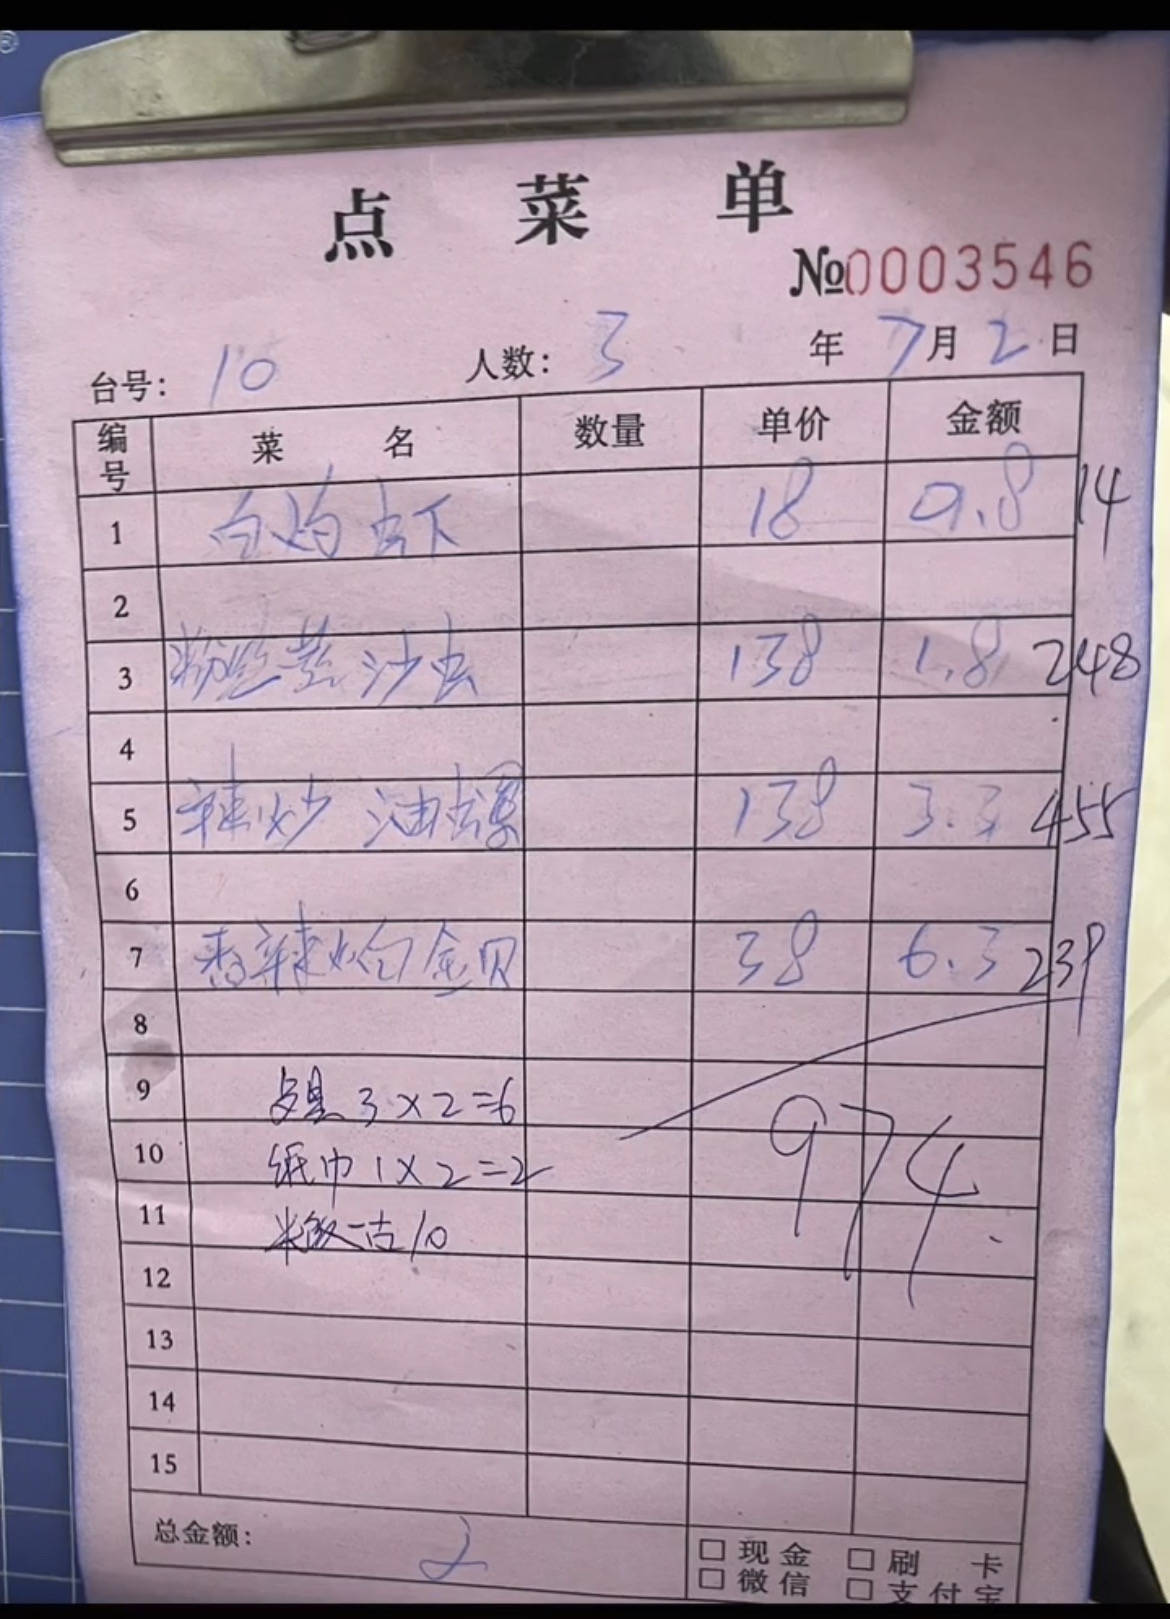 点 菜 单
№0003546
台号: 10 人数: 3 年 7月 2 日
编号 菜 名 数量 单价 金额
1 白灼虫下 18 0.8 14
2
3 粉丝蒸沙虫 138 1.8 248
4
5 辣炒油螺 138 3.3 455
6
7 香辣炒 金贝 38 6.3 239
8
9 3×2=6
10 纸巾 1×2=2
974
11 米饭一古10
12
13
14
15
总金额: 2 □ 现金 □ 刷 卡
□ 微信 □ 支付宝